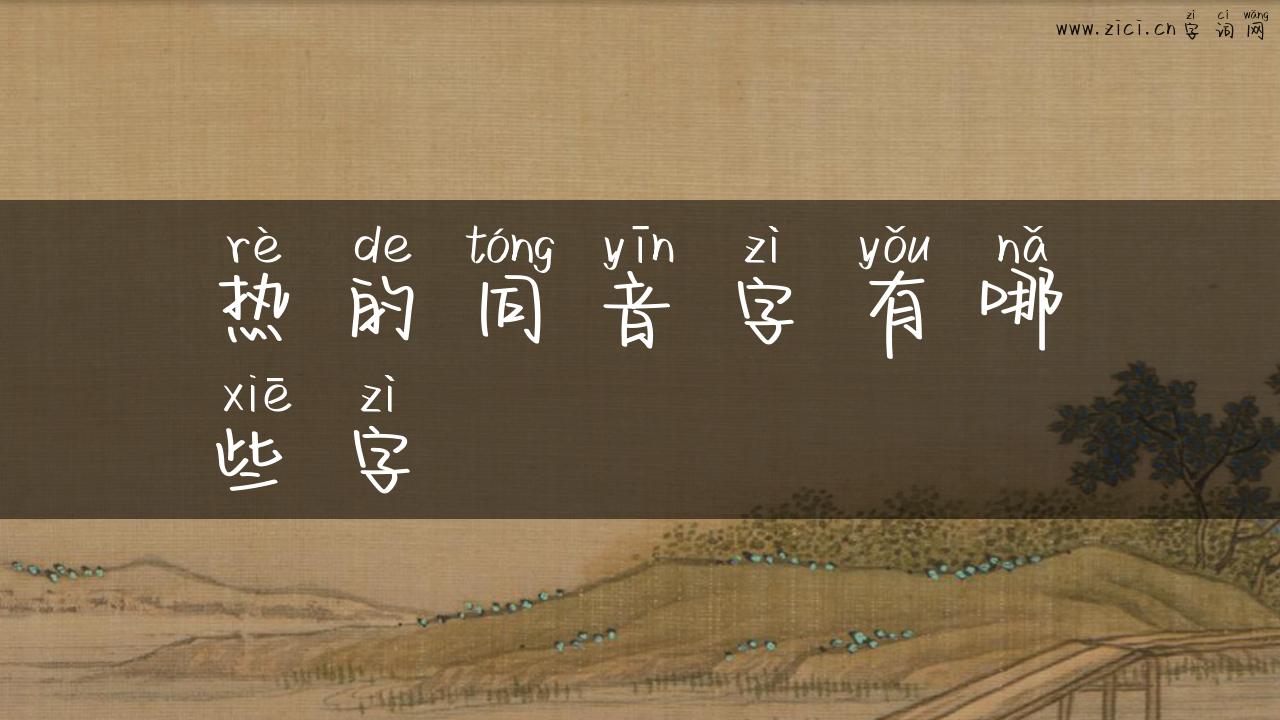 zì cí wǎng
www.zici.cn字词网
rè de tóng yīn zì yǒu nǎ
热的同音字有哪
xiē zì
些字